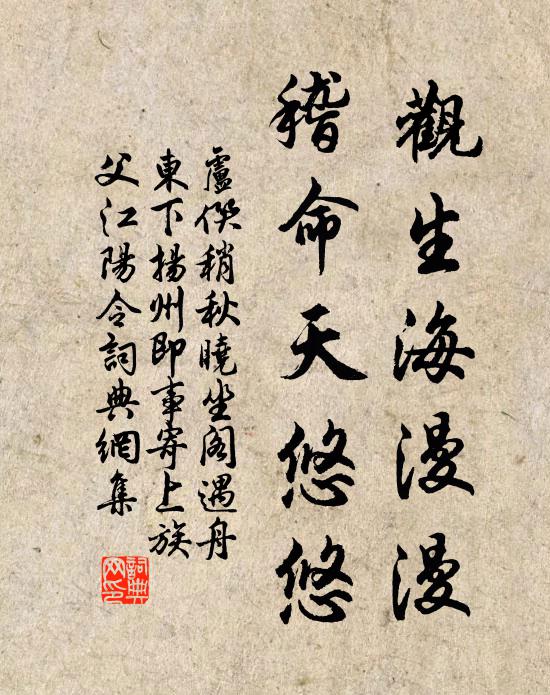 觀生海漫漫
稽命天悠悠
盧僎稍秋曉坐閣遇舟
東下揚州即事寄上族
父江陽令詞典網集
詞典網印